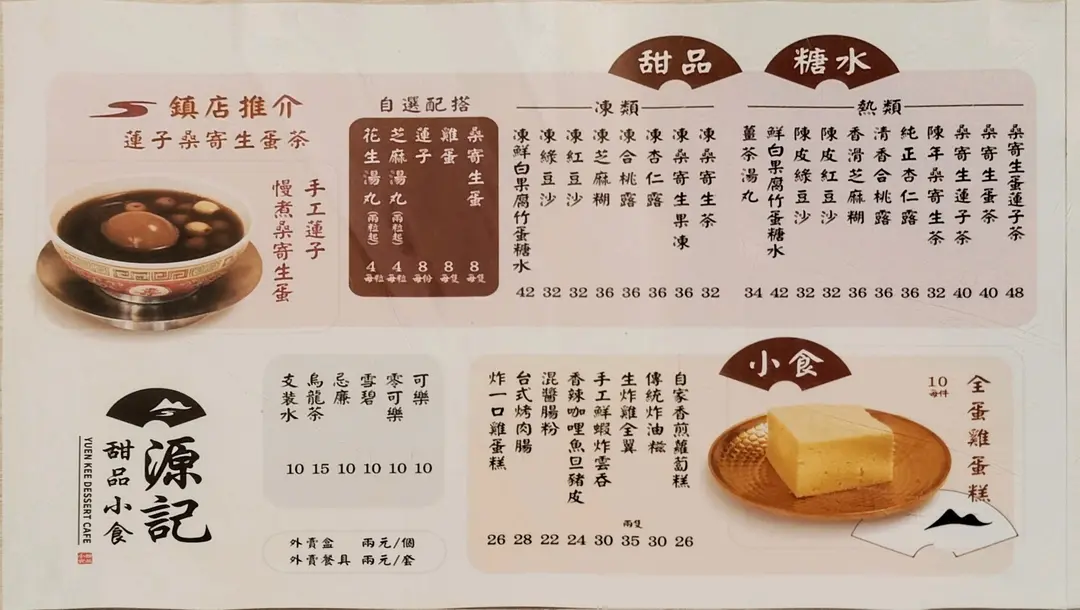 甜品 糖水
鎮店推介
蓮子桑寄生蛋茶
手工蓮子
慢煮桑寄生蛋
自選配搭
桑寄生蛋 8 每隻
雞蛋 8 每隻
蓮子 8 每份
芝麻湯丸(兩粒起) 4 每粒
花生湯丸(兩粒起) 4 每粒
凍類
凍桑寄生茶 32
凍桑寄生果凍 36
凍杏仁露 36
凍合桃露 36
凍芝麻糊 36
凍紅豆沙 32
凍綠豆沙 32
凍鮮白果腐竹蛋糖水 42
熱類
桑寄生蛋蓮子茶 48
桑寄生蛋茶 40
桑寄生蓮子茶 40
陳年桑寄生茶 32
純正杏仁露 36
清香合桃露 36
香滑芝麻糊 36
陳皮紅豆沙 32
陳皮綠豆沙 32
鮮白果腐竹蛋糖水 42
薑茶湯丸 34
源記
甜品小食
YUEN KEE DESSERT CAFE
可樂 10
零可樂 10
雪碧 10
忌廉 10
烏龍茶 15
支裝水 10
外賣盒 兩元/個
外賣餐具 兩元/套
小食
全蛋雞蛋糕
10 每件
自家香煎蘿蔔糕 26
傳統炸油糍 30
生炸雞全翼 兩隻 35
手工鮮蝦炸雲吞 30
香辣咖哩魚旦豬皮 24
混醬腸粉 22
台式烤肉腸 28
炸一口雞蛋糕 26